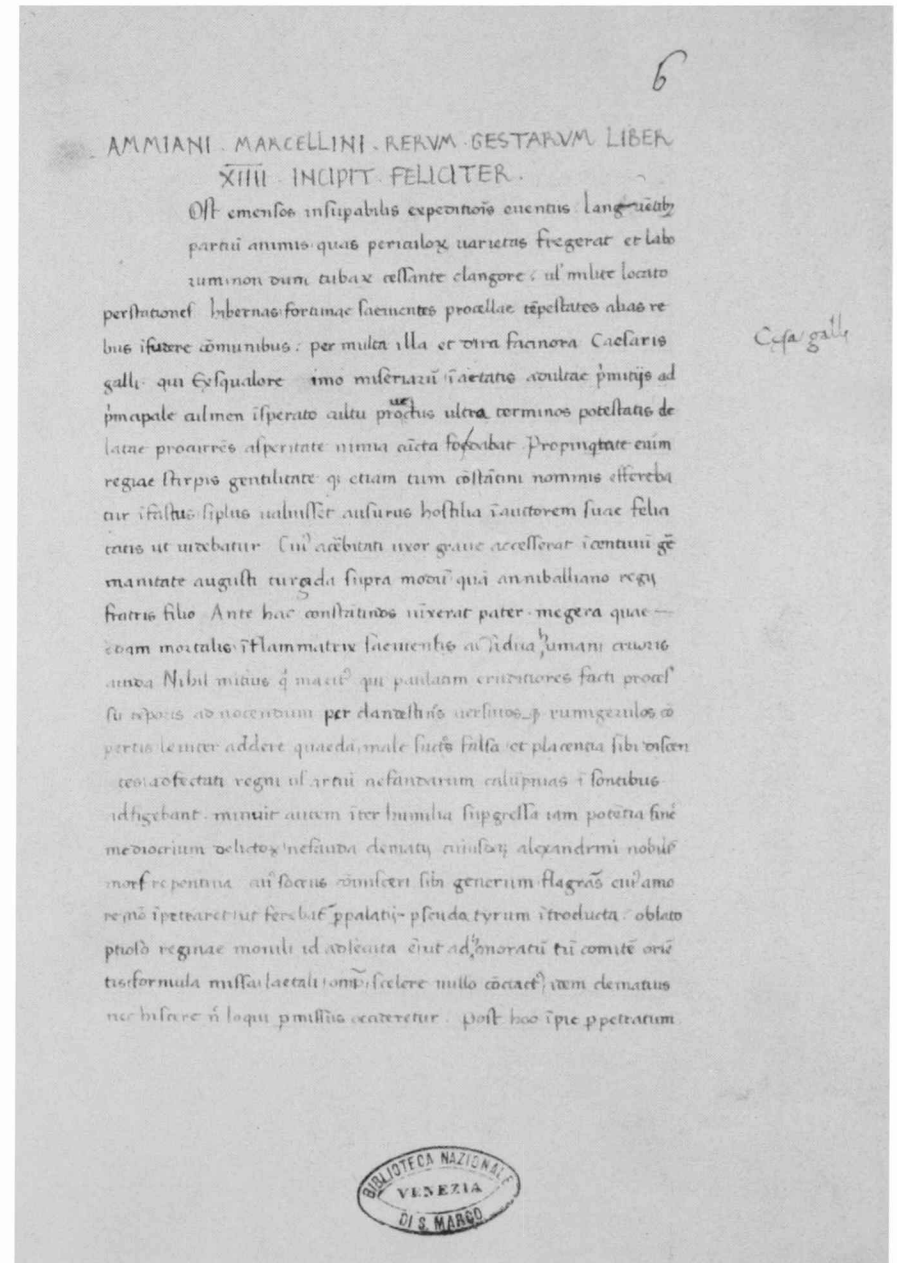 6
AMMIANI . MARCELLINI . RERVM . GESTARVM LIBER
XIIII . INCIPIT . FELICITER .
Ost emensos insupabilis expeditiois euentus langueẽtibꝫ
partiũ animis quas periculoꝝ uarietas fregerat et labo
rum non dum tubaꝝ cessante clangore ul milite locato
perstationes hibernas fortunae saeuientes procellae tẽpestates alias re
bus ĩfudere cõmunibus : per multa illa et dira facinora Caesaris
Cesar galli
galli qui Exsqualore imo miseriarũ ĩ aetatis adultae pĩmitijs ad
pĩncipale culmen ĩsperato cultu prouectus ultra terminos potestatis de
latae procurrẽs asperitate nimia cũcta foedabat Propinqtate enim
regiae stirpis gentilitate qͥ etiam tum cõstãtini nominis effereba
tur ĩ fastus si plus ualuisset ausurus hostilia ĩ auctorem suae felici
tatis ut uidebatur Cuiꝰ acẽbitati uxor graue accesserat ĩcentiuũ gẽ
manitate augusti turgida supra modũ quã anniballiano regi
fratris filio Ante hac constantinos iũxerat pater megera quae
mortalis ĩflammatrix saeuientis adsidua humani cruoris
auida Nihil mitius qͣ maritꝰ qui paulatim eruditiores facti proces
su tẽporis ad nocendum per clandestinos uersutos qͥ rumigerulos cõ
pertis leuiter addere quaedã male suetos falsa et placentia sibi discen
tes adfectati regni ul artiũ nefandarum calũpnias ĩ sontibus
adfigebant . minuit autem ĩter humilia supgressa iam potẽtia finẽ
mediocrium delictoꝝ nefanda clematij cuiusdã alexandrini nobilis
mors repentina cuiꝰ socrus cõmisceri sibi generum flagrãs cuiꝰ amo
re nõ ĩpetraret ut ferebatͬ ꝑ palatij pseudo tyrum ĩtroducta : oblato
ptioso reginae monili id adsecuta ẽ ut ad honoratũ tũ comitẽ oriẽ
tis formula missa laetali scelere nullo cõtactꝰ idem clematius
nec hiscere nͨ loqui pmissus occideretur . Post hoc ĩpie ꝑpetratum
BIBLIOTECA NAZIONALE
VENEZIA
DI S. MARCO